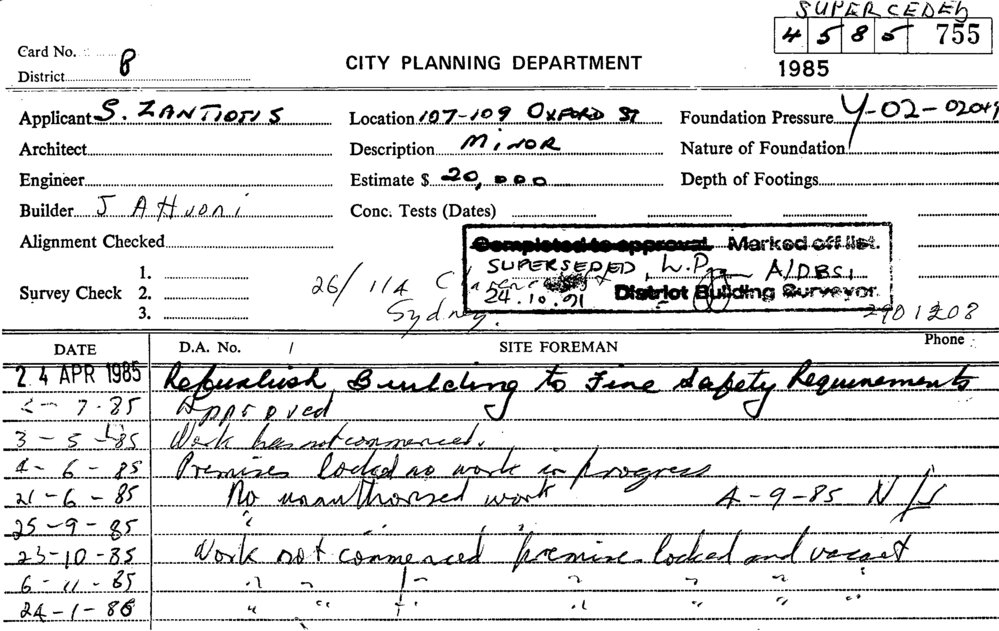 SUPERCEDED
4 5 8 5 755
1985
Card No.
District 8
CITY PLANNING DEPARTMENT
Applicant S. ZANTIOTIS Location 107-109 OXFORD ST Foundation Pressure Y-02-02049
Architect Description MINOR Nature of Foundation
Engineer Estimate $ 20,000 Depth of Footings
Builder J Conc. Tests (Dates)
Alignment Checked
Completed to approval. Marked off list.
SUPERSEDED A/DBS
24.10.91 District Building Surveyor.
Survey Check 1. 2. 3.
26/114
Sydney.
2901208
DATE D.A. No. SITE FOREMAN Phone
24 APR 1985 Refurbish Building to Fire Safety Requirements
2-7-85 Approved
3-5-85 Work has not commenced.
4-6-85 Premises locked no work in progress
21-6-85 No unauthorised work 4-9-85
25-9-85 " "
23-10-85 Work not commenced premises locked and vacant
6-11-85 " " " " " "
24-1-86 " " " " " " "